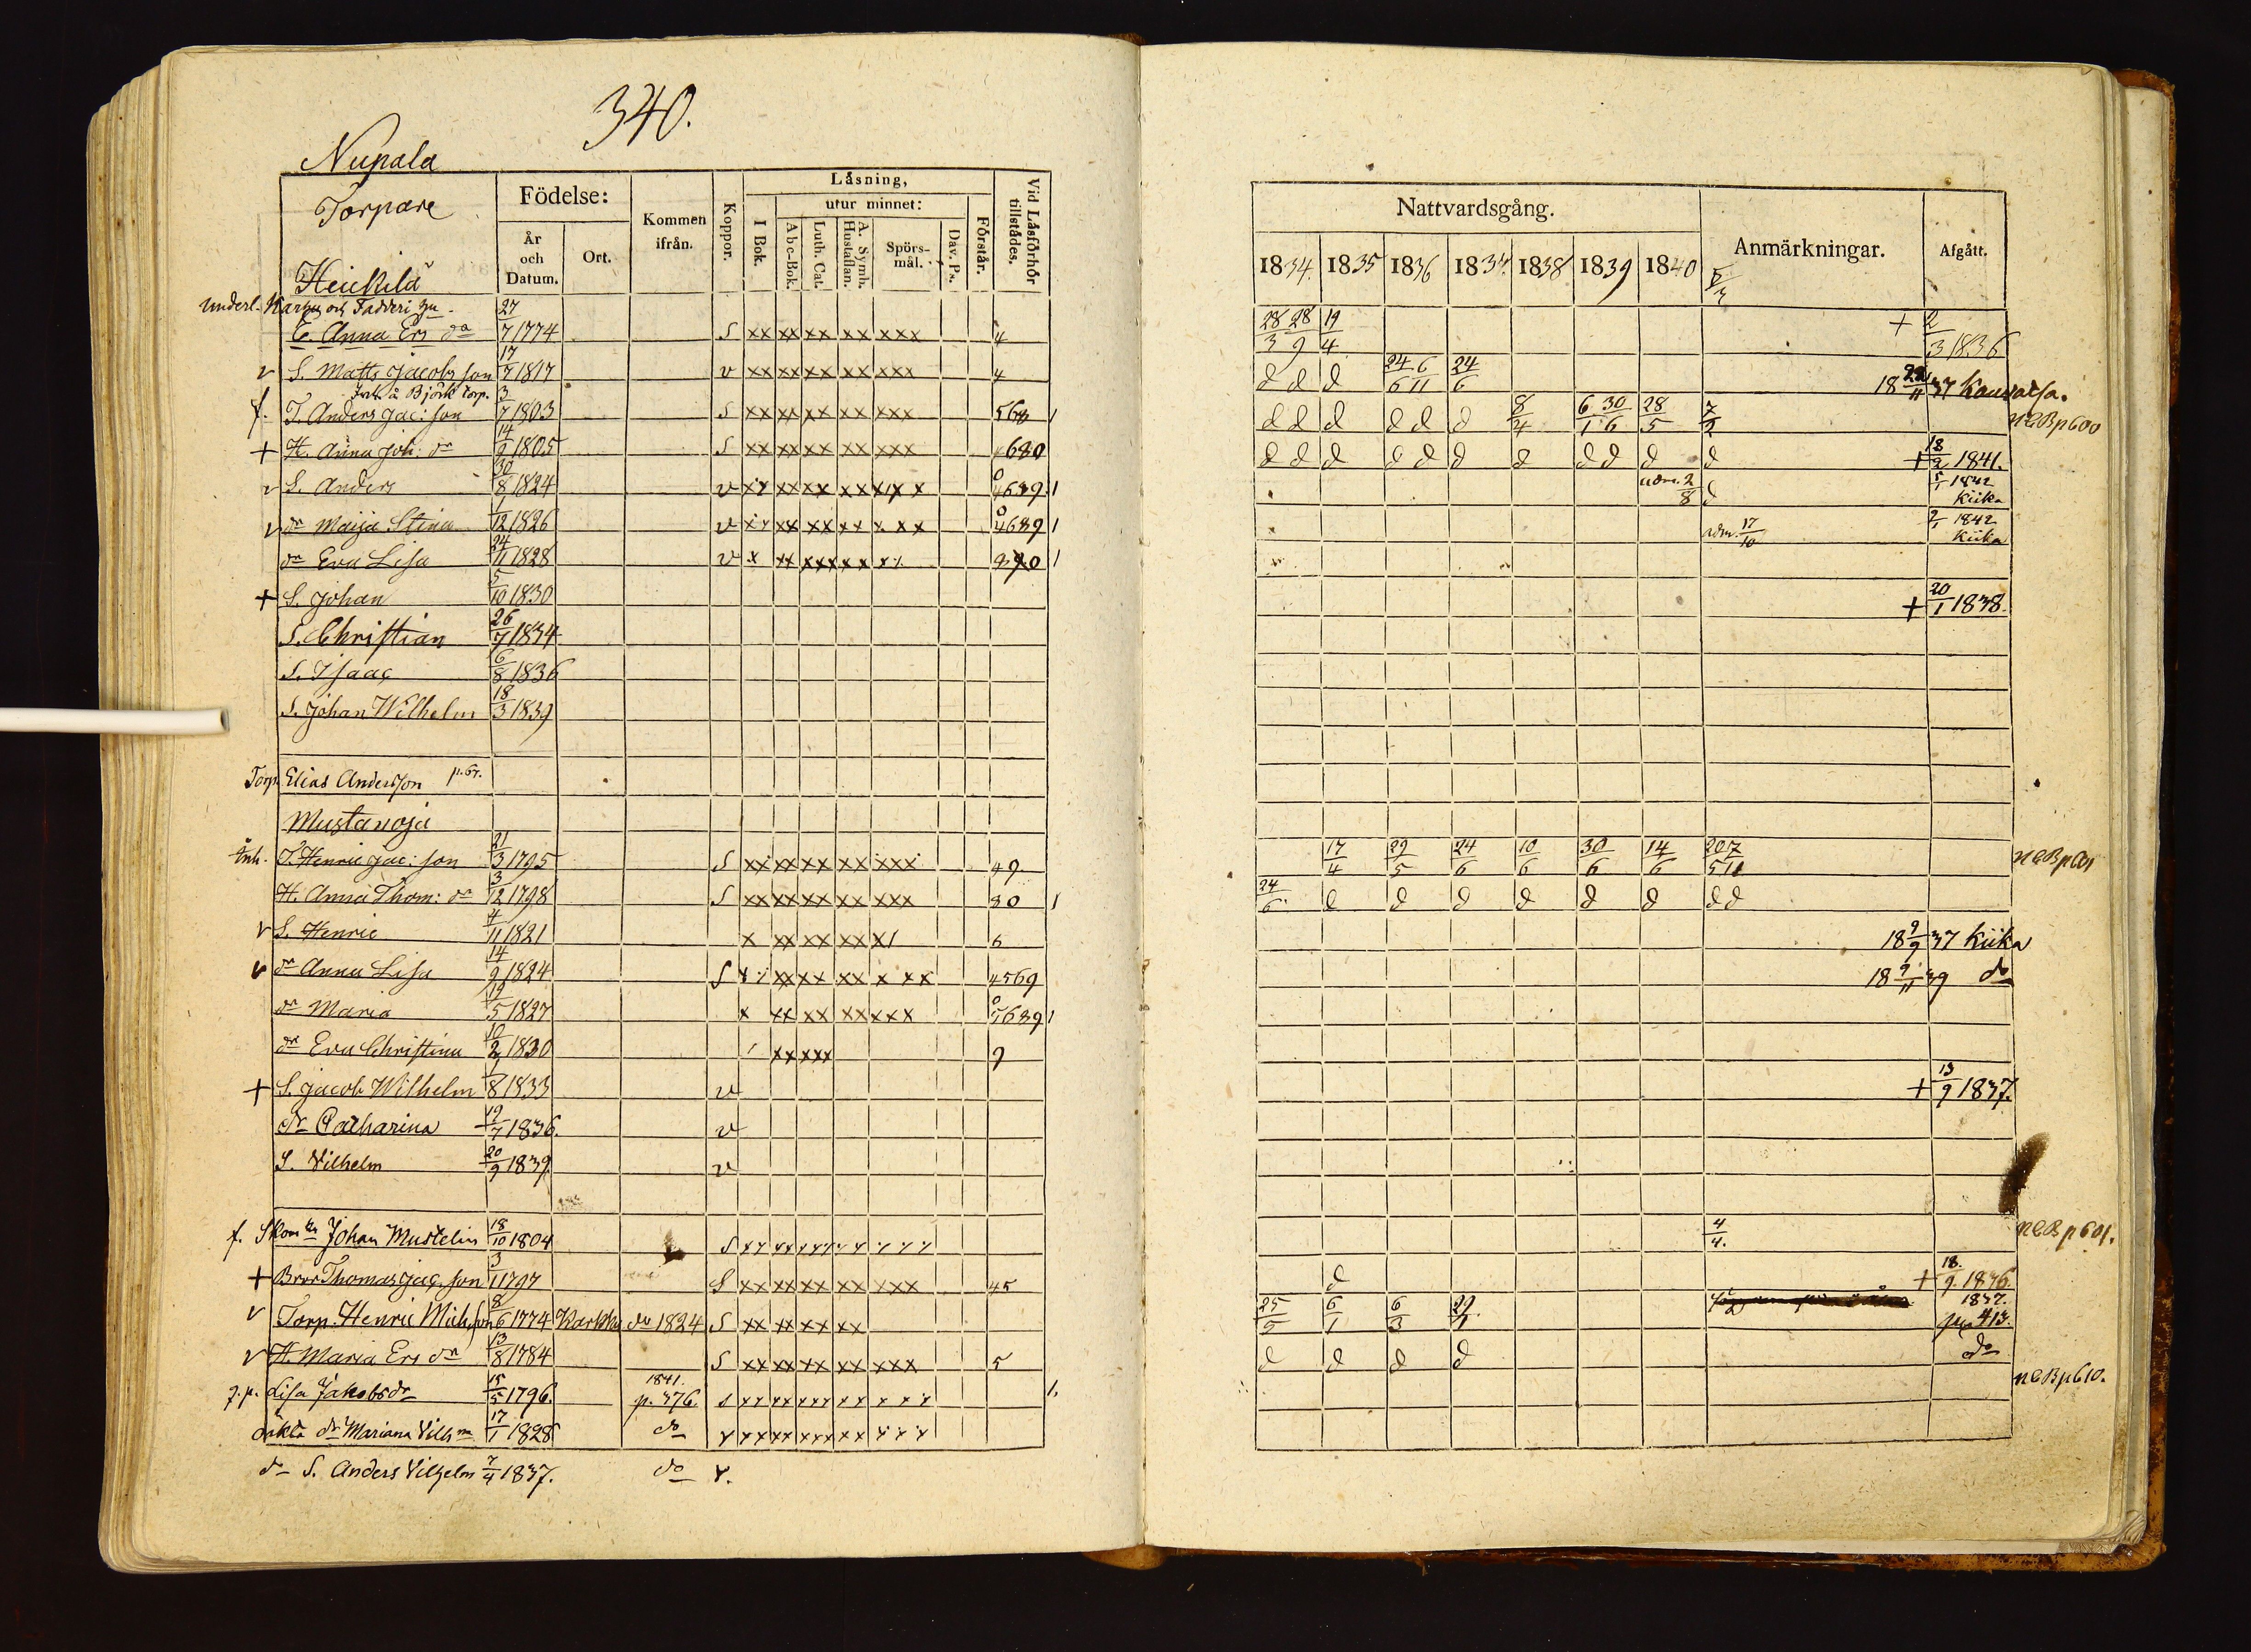 340.
Nupala
Torpare
Heickilä
Födelse:
År och Datum.
Ort.
Kommen ifrån.
Koppor.
Läsning,
I Bok.
utur minnet:
Abc-Bok.
Luth. Cat.
A. Symb. Hustaflan.
Spörs-mål.
Dav. Ps.
Förstår.
Vid Läsförhör tillstådes.
Nattvardsgång.
1834. 1835 1836 1837. 1838 1839 1840
Anmärkningar.
Afgått.
E. Anna Ers dr 27/7 1774 S xx xx xx xx xxx 4 28/3 28/9 19/4 + 2/3 1836
v S. Matts Jacobsson 17/7 1817 v xx xx xx xx xxx 4 d d d 24/6 6/11 24/6 18 22/11 37
Björk torp.
f. T. Anders Jac: son 3/7 1803 S xx xx xx xx xxx 568 1 d d d d d d 8/4 6/1 30/6 28/5 7/2 NCB p 600
+ H. Anna Joh: dr 14/9 1805 S xx xx xx xx xxx 4680 d d d d d d d d d d d + 18/2 1841.
v S. Anders 30/8 1824 v xx xx xx 4689 1 2/8 d 1842 Kiika
v dr Maija Stina 1/12 1826 v xx xx xx 4689 1 17/10 1842 Kiika
dr Eva Lisa 24/11 1828 v x xx xxx 1
+ S. Johan 5/10 1830 + 20/1 1838.
S. Christian 26/7 1834
S. Isaac 6/8 1836
S. Johan Wilhelm 18/3 1839
Torp. Elias Andersson p. 67.
Mustanoja
Inh. T. Henric Jac: son 21/3 1795 S xx xx xx xx xxx 49 17/4 29/5 24/6 10/6 30/6 14/6 20/5 7/11 NCB p 601
H. Anna Thom: dr 3/12 1798 S xx xx xx xx xxx 80 1 24/6 d d d d d d d d
v S. Henric 4/11 1821 x xx xx xx x1 6 18 9/9 37 Kiika
v dr Anna Lisa 14/9 1824 S xx xx xx x x x 4569 18 9/11 39 do
dr Maria 19/5 1827 x xx xx xx xxx 5689 1
dr Eva Christina 10/2 1830 xxxxx 9
+ S. Jacob Wilhelm 8 1833 v + 13/9 1837.
dr Catharina 19/7 1836. v
S. Vilhelm 20/9 1839 v
f. Johan Mustelin 18/10 1804 S 4/4. NCB p 601.
+ Bror Thomas Jac. son 3/1 1797 S xx xx xx xx xxx 45 d + 18./9. 1836.
v Torp. Henric Mich. son 8/6 1774 Karkku 1824 S xx xx xx xx 25/5 6/1 6/3 29/1 1837. pag 413.
v H. Maria Ers dr 13/8 1784 S xx xx xx xx xxx 5 d d d d do
Lisa Jakobsdr 15/5 1796. 1841. p. 376. S 1. NCB p 610.
oäkta dr Mariana Vilh:na 17/1 1828 do
d- S. Anders Vilhelm 7/4 1837. do v.